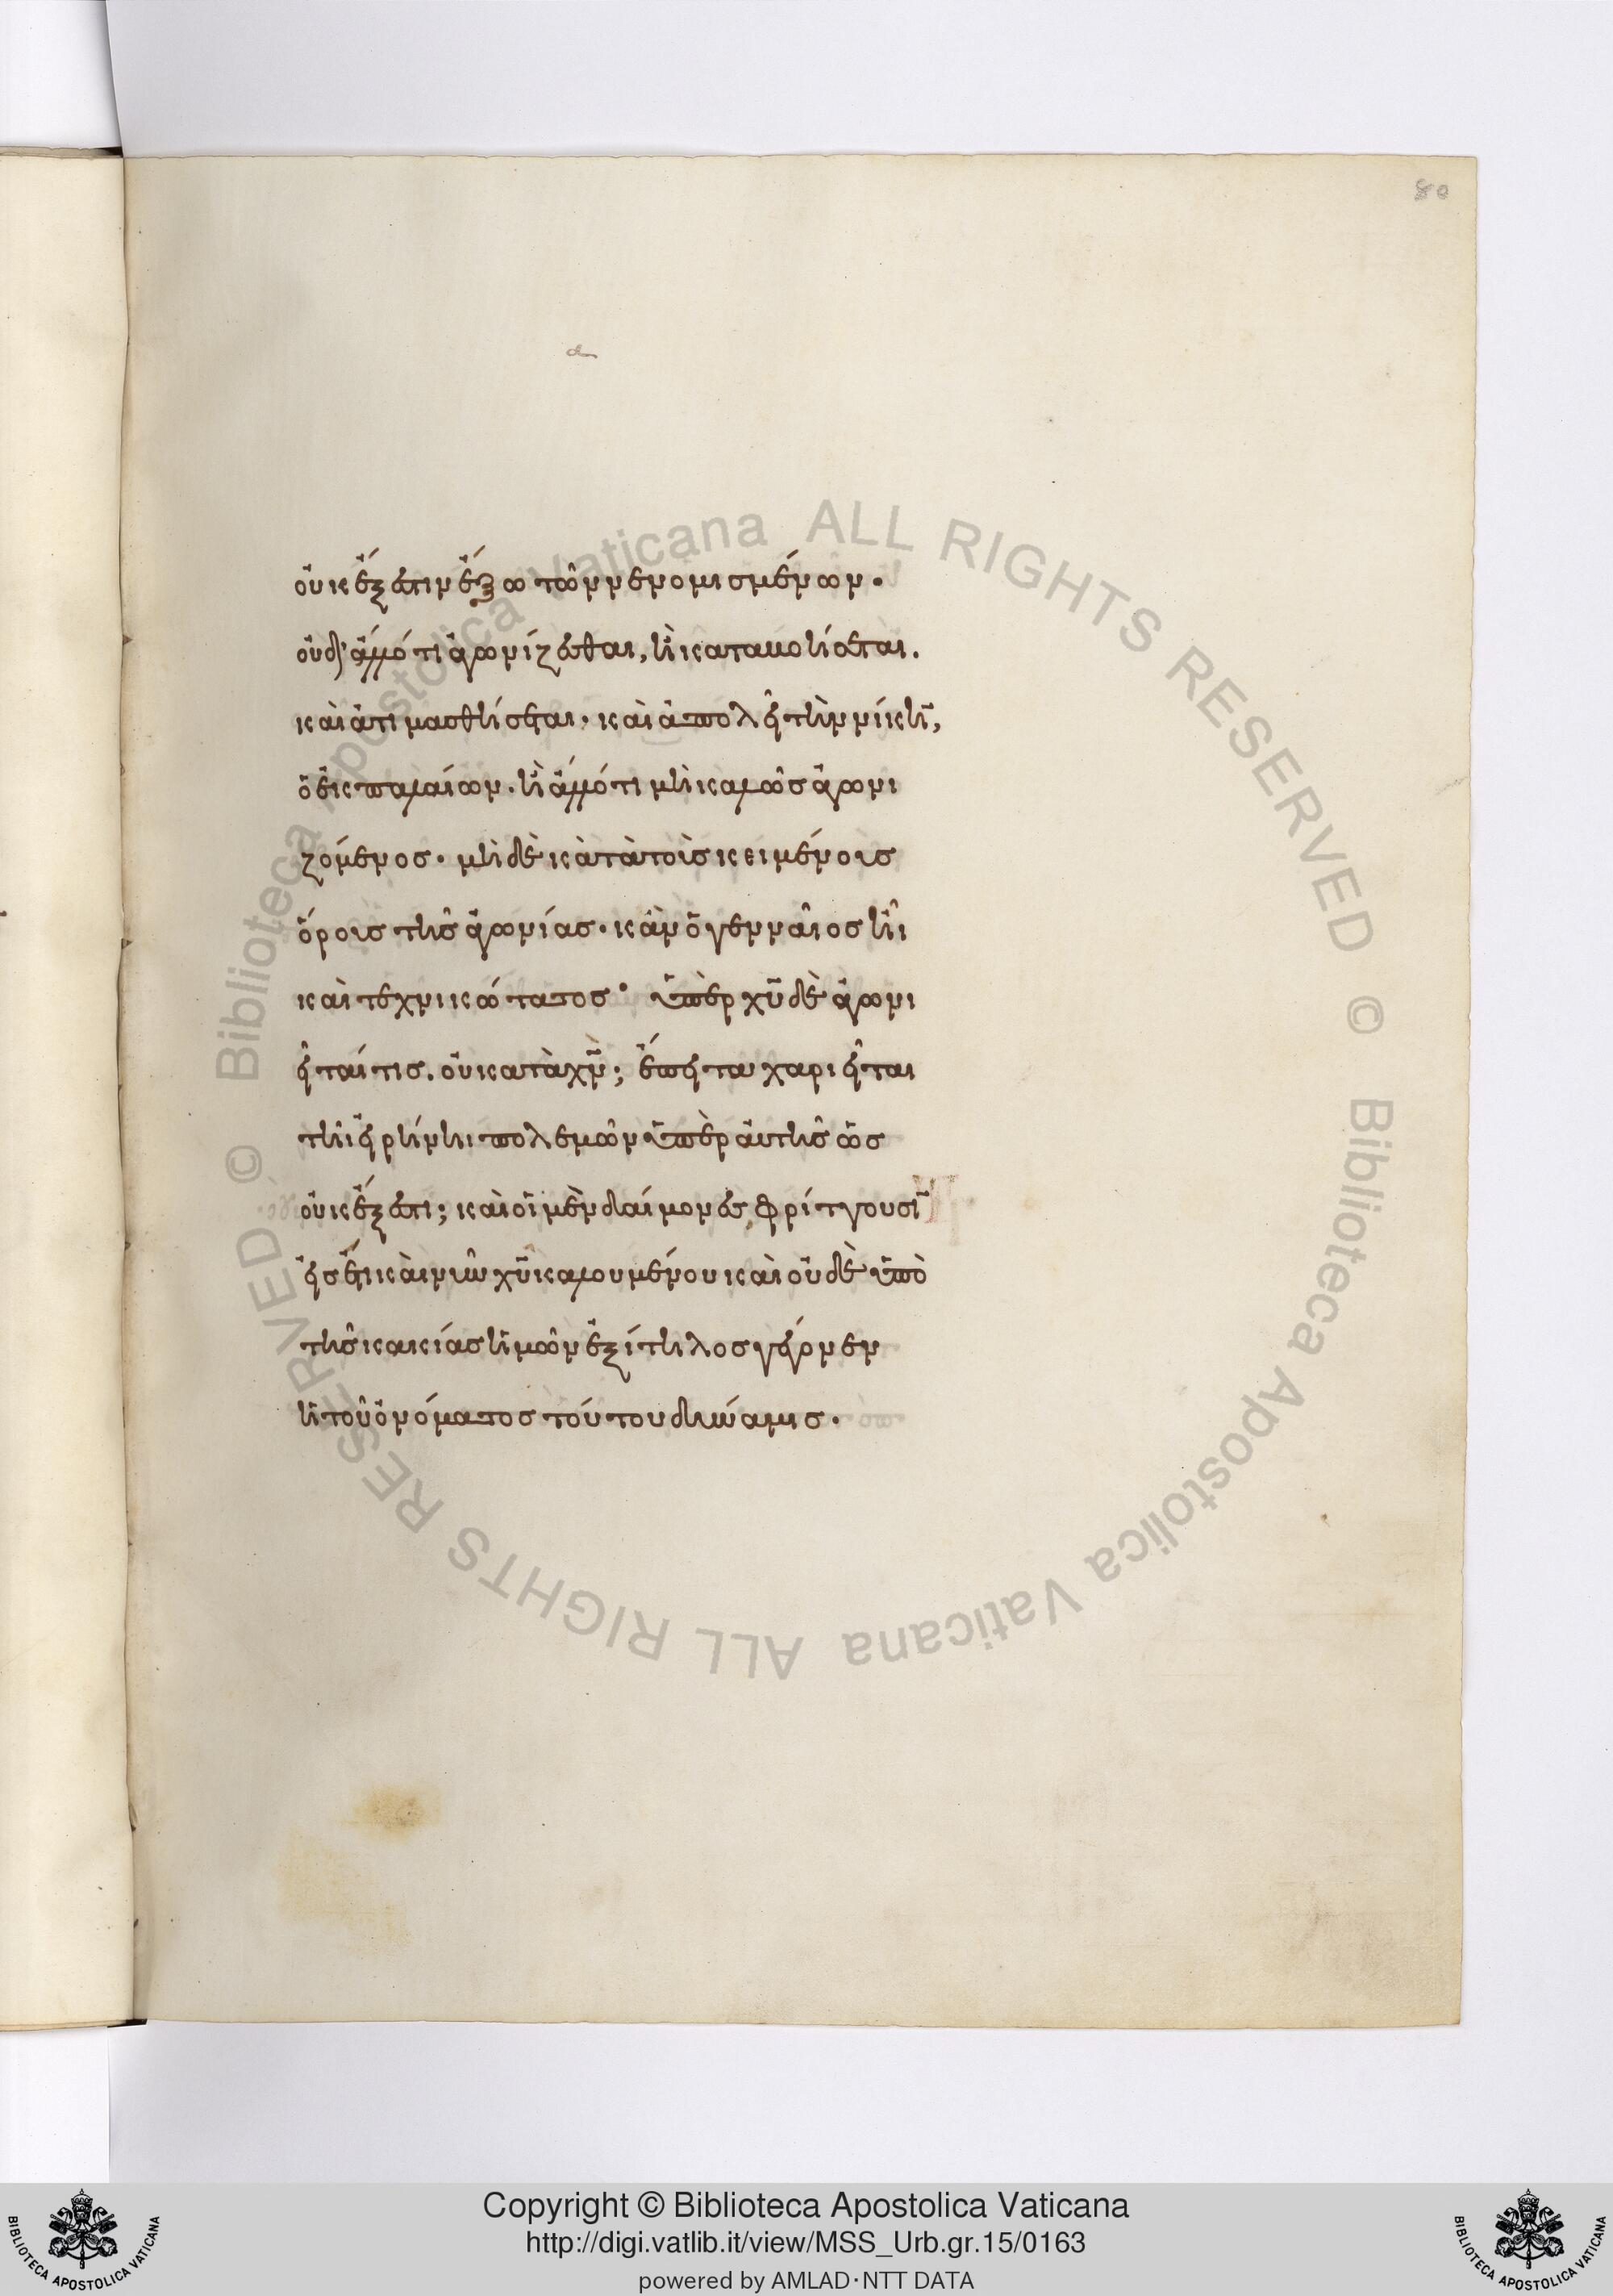 80
οὐκ ἔξεστιν ἔξω τῶν νενομισμένων.
οὐδ' ἄλλό τι ἀγωνίζεσθαι, ἢ καταυλεῖσθαι.
καὶ ἀτιμασθήσεται· καὶ ἀπολεῖ τὴν νίκην,
ὁ ἐκπαλαίων. ἢ ἄλλό τι μὴ καλῶς ἀγωνι
ζόμενος· μὴ δὲ κατὰ τοῖς κειμένοις
ὅροις τῆς ἀγωνίας· κἂν ὁ γενναῖος ἦι
καὶ τεχνικώτατος· ὑπὲρ χῦ δὲ ἀγωνι
εῖταί τις. οὐ κατὰ χν̄; ἔπειτα χαριεῖται
τῆι εἰρήνηι πολεμῶν ὑπὲρ αὐτῆς ὡς
οὐκ ἔξεστι; καὶ οἱ μὲν δαίμονες φρίττουσιν
εἰσέτι καὶ νῦν χῦ καλουμένου καὶ οὐδὲ ὑπὸ
τῆς κακίας ἡμῶν ἐξίτηλος γέγονεν
ἡ τοῦ ὀνόματος τούτου δύναμις.
Biblioteca Apostolica Vaticana ALL RIGHTS RESERVED ©
Biblioteca Apostolica Vaticana ALL RIGHTS RESERVED ©
BIBLIOTECA APOSTOLICA VATICANA
Copyright © Biblioteca Apostolica Vaticana
http://digi.vatlib.it/view/MSS_Urb.gr.15/0163
powered by AMLAD·NTT DATA
BIBLIOTECA APOSTOLICA VATICANA